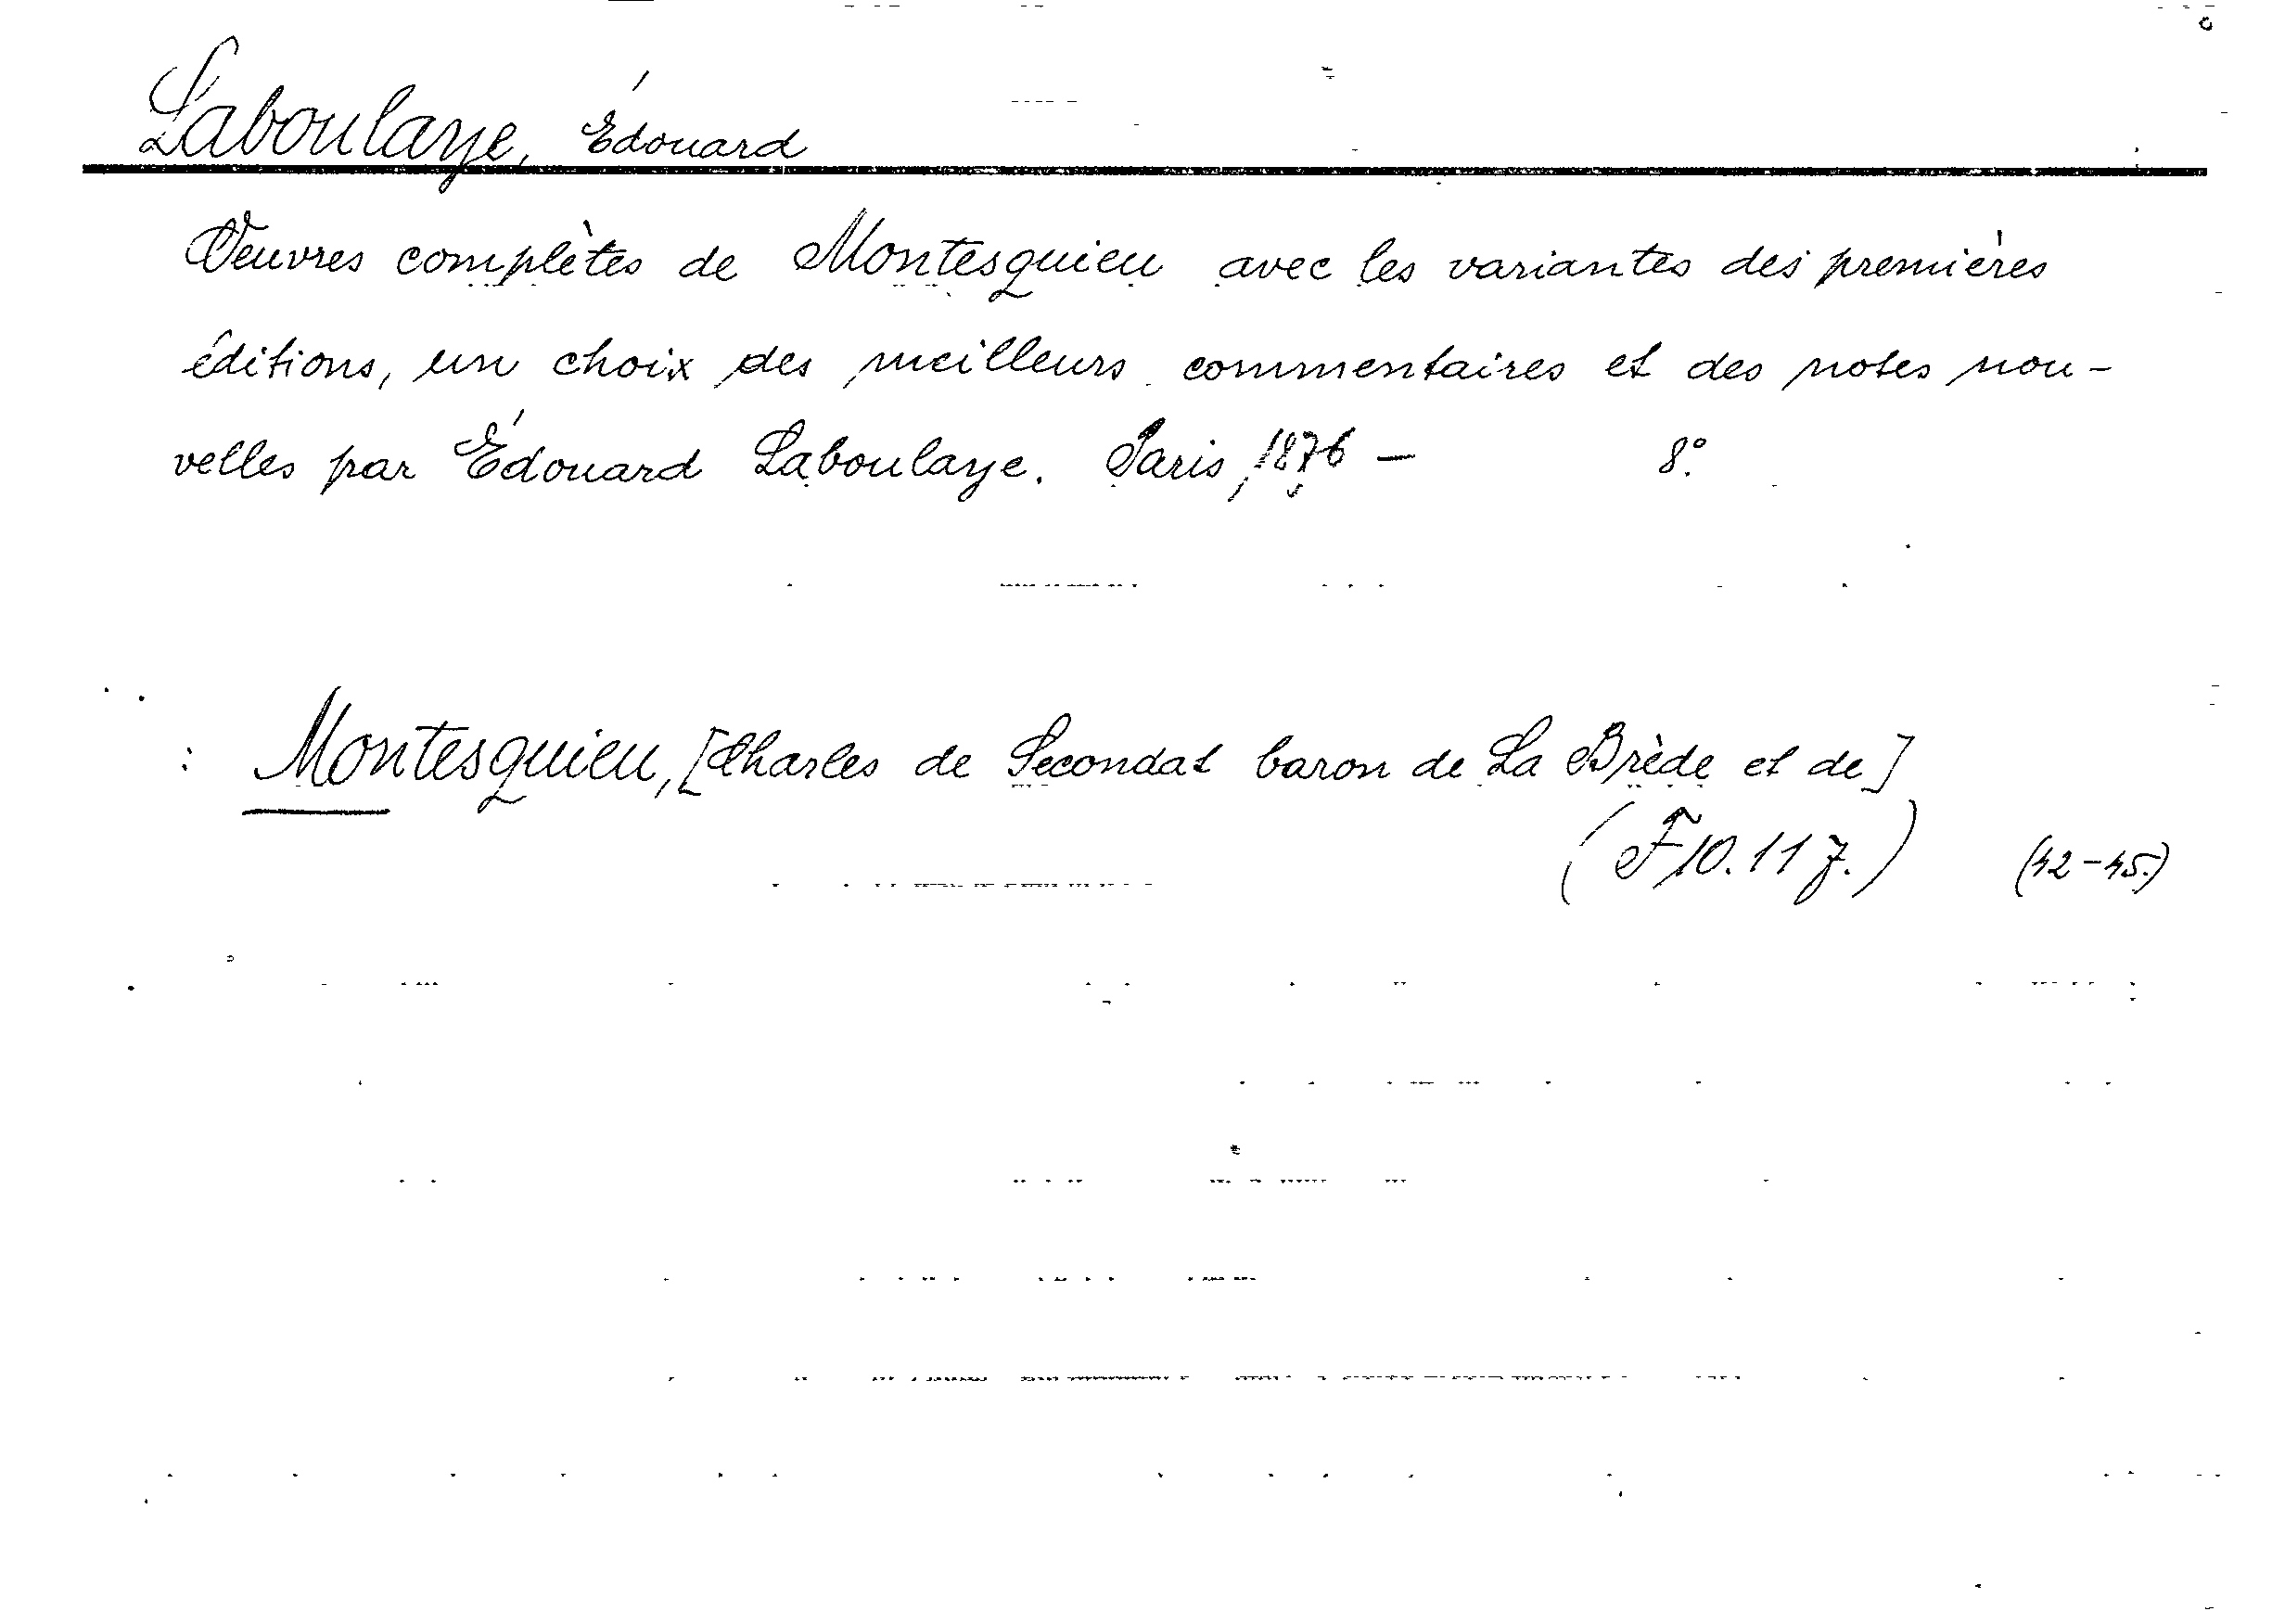 Laboulaye, Édouard
Oeuvres complètes de Montesquieu avec les variantes des premières
éditions, un choix des meilleurs commentaires et des notes nou-
velles par Édouard Laboulaye. Paris, 1876 – 8°.
: Montesquieu, [Charles de Secondat baron de La Brède et de]
(F 10.117.) (42-45.)